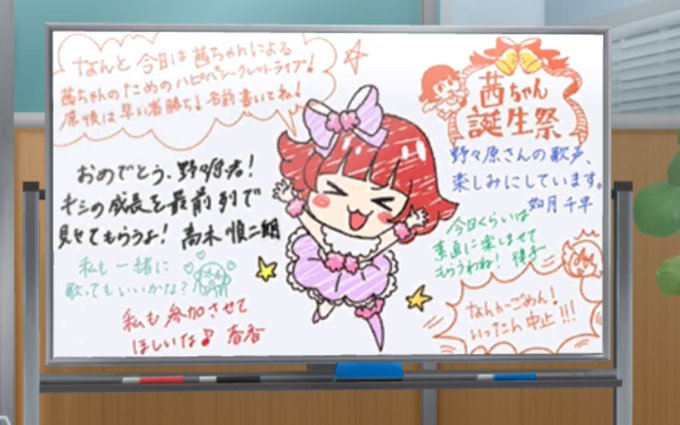 なんと 今日は茜ちゃんによる
茜ちゃんのためのハピバシークレットライブ!
席順は早い者勝ち! 名前書いてね!
茜ちゃん
誕生祭
おめでとう、野々原君!
キミの成長を最前列で
見せてもらうよ! 高木順二朗
野々原さんの歌声、
楽しみにしています。
如月千早
私も一緒に
歌ってもいいかな?
今日くらいは
素直に楽しませて
もらうわね! 律子
私も参加させて
ほしいな♪ 春香
なんかーごめん!
いったん中止!!!